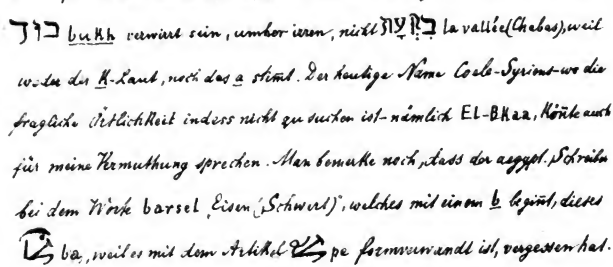 בוך bukh verwirrt sein, umher irren, nicht בקעת la vallée (Chabas), weil
weder der K-Laut, noch das a stim̄t. Der heutige Name Coele-Syriens-wo die
fragliche Örtlichkeit indess nicht zu suchen ist-nämlich EL-BKaa, Kön̄te auch
für meine Vermuthung sprechen. Man bemerke noch, dass der aegypt. Schreiber
bei dem Worte barsel „Eisen (Schwert)", welches mit einem b begin̄t, dieses
ba, weil es mit dem Artikel pe formverwandt ist, vergessen hat.